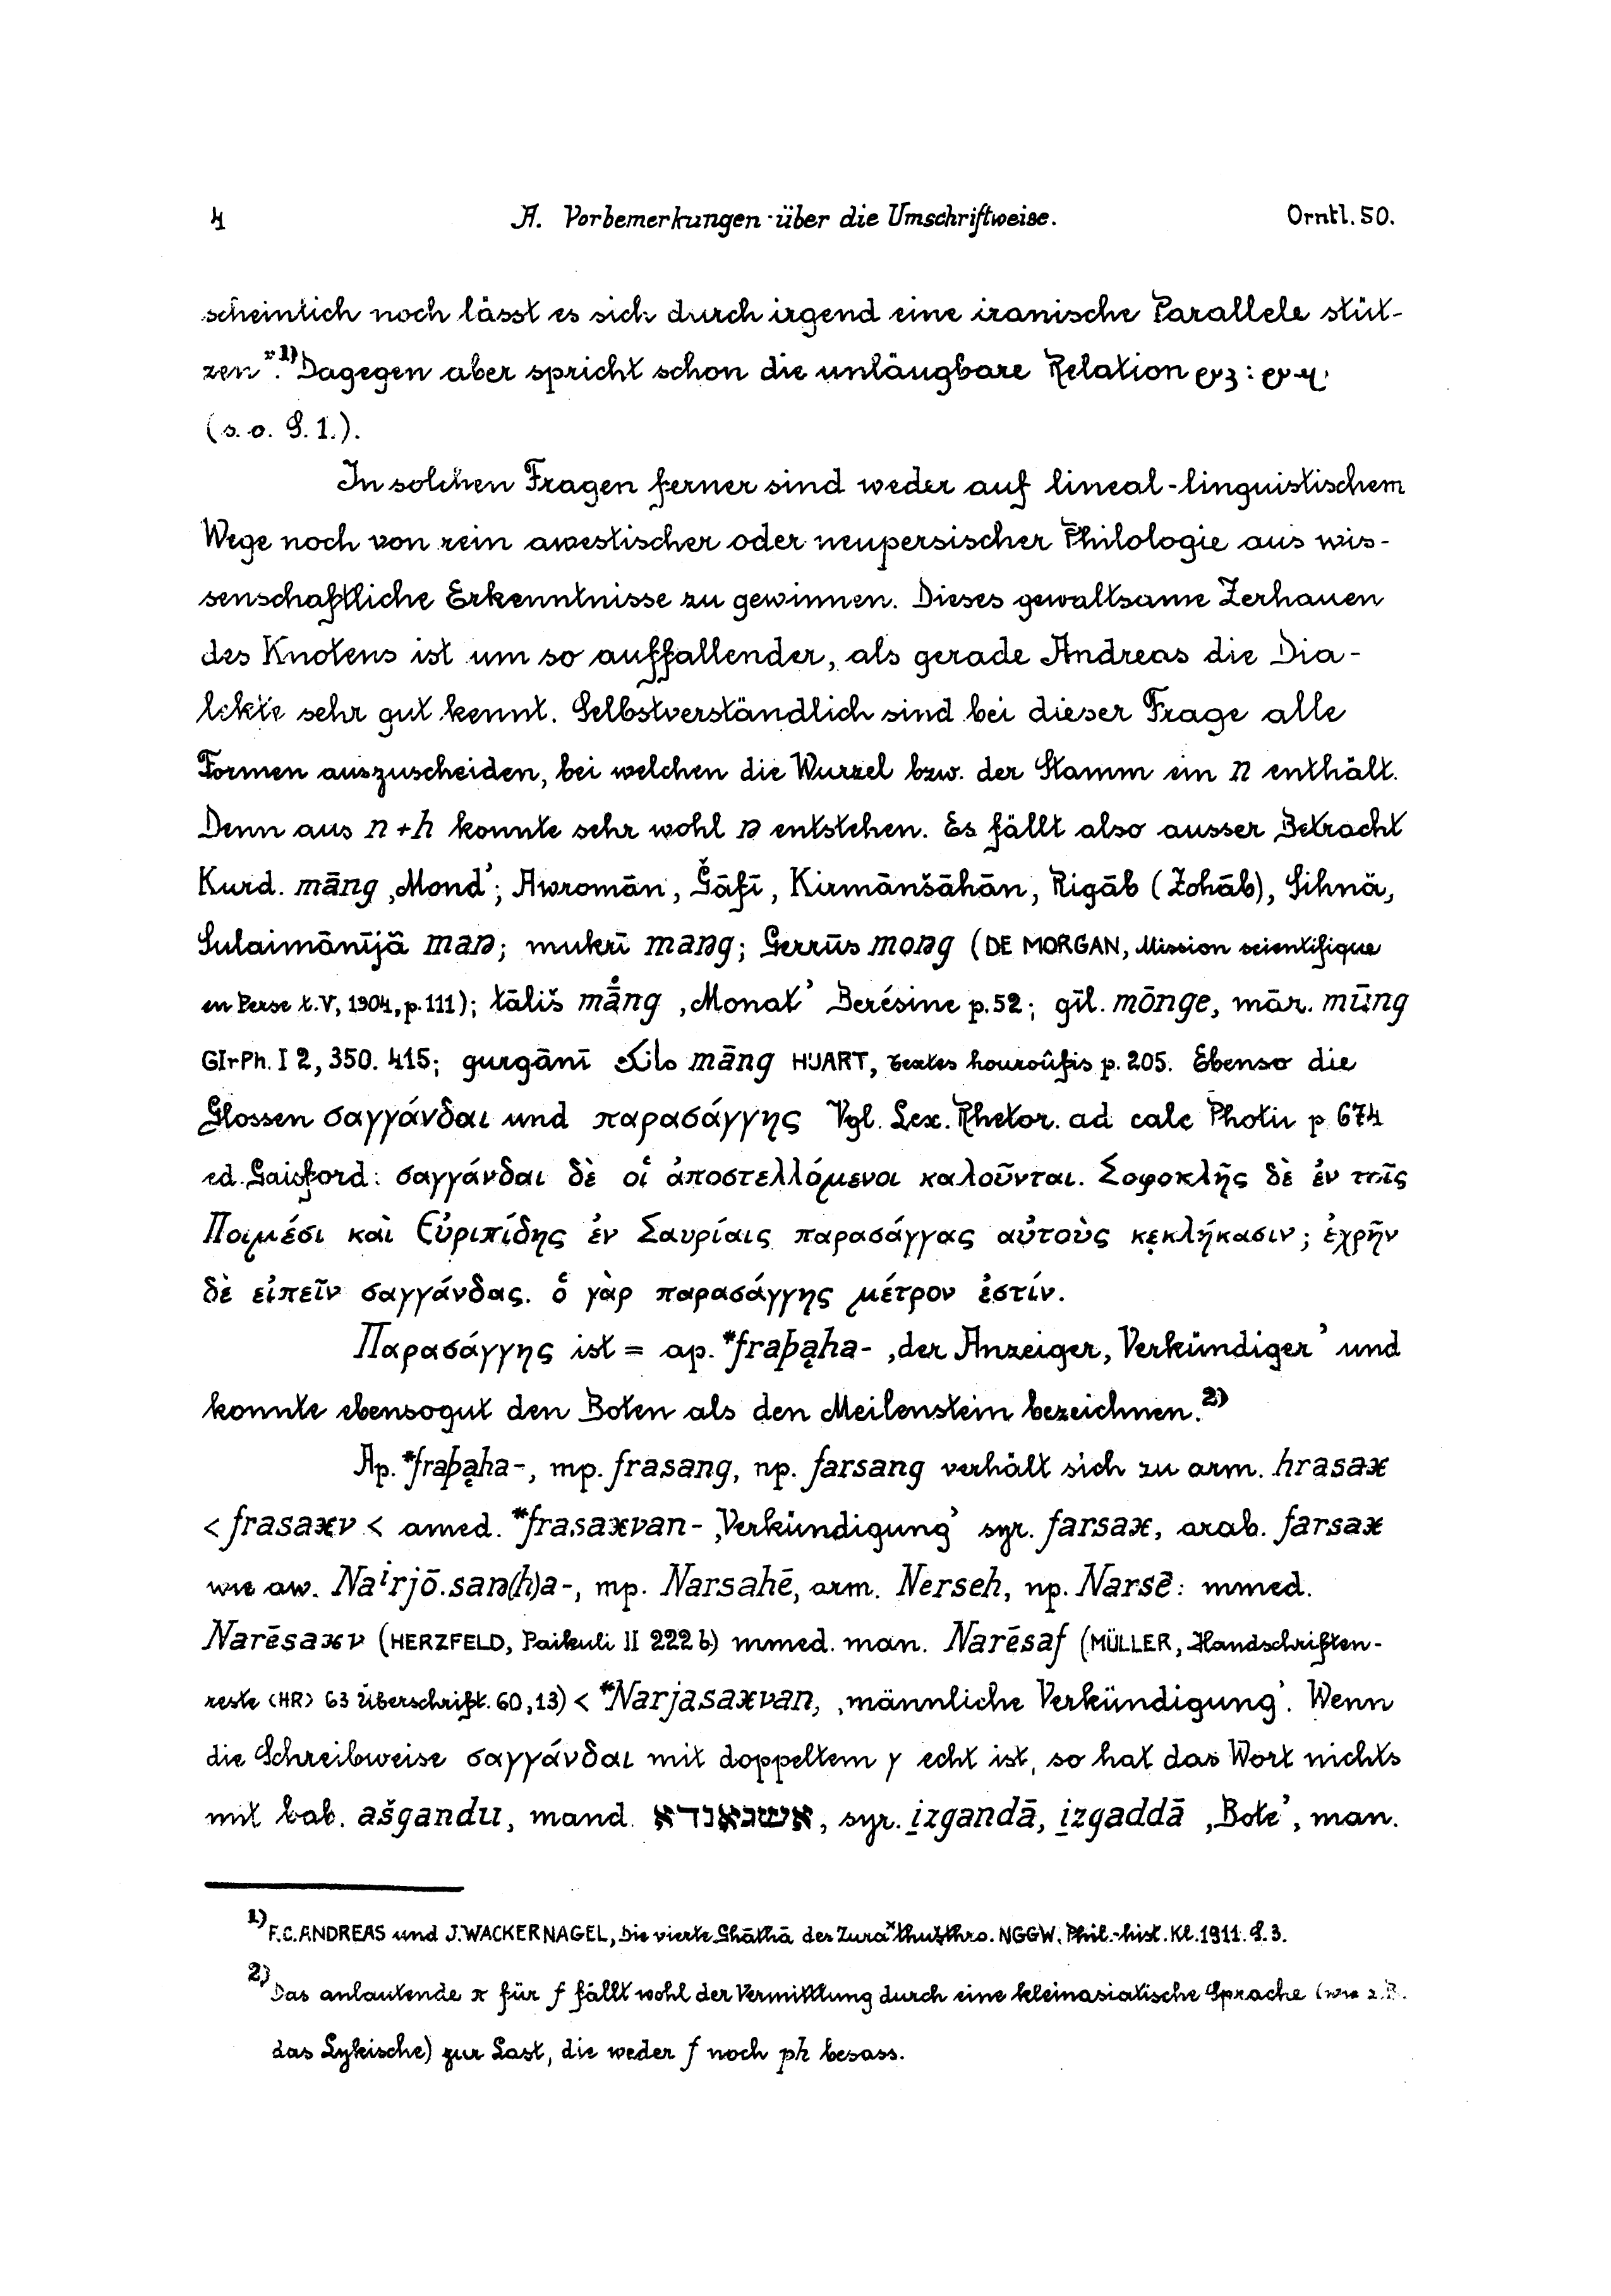 4 A. Vorbemerkungen über die Umschriftweise. Orntl. 50.
scheinlich noch lässt es sich durch irgend eine iranische Parallele stüt-
zen“.1) Dagegen aber spricht schon die unläugbare Relation
(s. o. S. 1.).
In solchen Fragen ferner sind weder auf lineal-linguistischem
Wege noch von rein awestischer oder neupersischer Philologie aus wis-
senschaftliche Erkenntnisse zu gewinnen. Dieses gewaltsame Zerhauen
des Knotens ist um so auffallender, als gerade Andreas die Dia-
lekte sehr gut kennt. Selbstverständlich sind bei dieser Frage alle
Formen auszuscheiden, bei welchen die Wurzel bzw. der Stamm ein n enthält.
Denn aus n+h konnte sehr wohl ŋ entstehen. Es fällt also ausser Betracht
Kurd. māng ‚Mond’; Awromān, Ǧāfī, Kirmānšāhān, Rigāb (Zohāb), Sihnä,
Sulaimānījä maŋ; mukrī maŋg; Gerrūs moŋg (DE MORGAN, Mission scientifique
en Perse t. V, 1904, p. 111); tāliš mā̊ng ‚Monat’ Berésine p. 52; gīl. mōnge, mār. mūng
GIrPh. I 2, 350. 415; gurgānī مانگ māng HUART, textes houroûfis p. 205. Ebenso die
Glossen σαγγάνδαι und παρασάγγης Vgl. Lex. Rhetor. ad calc Photii p 674
ed. Gaisford: σαγγάνδαι δὲ οἱ ἀποστελλόμενοι καλοῦνται. Σοφοκλῆς δὲ ἐν τοῖς
Ποιμέσι καὶ Εὐριπίδης ἐν Σαυρίαις παρασάγγας αὐτοὺς κεκλήκασιν; ἐχρῆν
δὲ εἰπεῖν σαγγάνδας. ὁ γὰρ παρασάγγης μέτρον ἐστίν.
Παρασάγγης ist = ap. *fraþąha- ‚der Anzeiger, Verkündiger’ und
konnte ebensogut den Boten als den Meilenstein bezeichnen.2)
Ap. *fraþąha-, mp. frasang, np. farsang verhält sich zu arm. hrasax
< frasaxv < amed. *frasaxvan- ‚Verkündigung’ syr. farsax, arab. farsax
wie aw. Naⁱrjō.saŋ(h)a-, mp. Narsahē, arm. Nerseh, np. Narsē: mmed.
Narēsaxv (HERZFELD, Paikuli II 222 b) mmed. man. Narēsaf (MÜLLER, Handschriften-
reste (HR) 63 Überschrift. 60,13) < *Narjasaxvan, ‚männliche Verkündigung’. Wenn
die Schreibweise σαγγάνδαι mit doppeltem γ echt ist, so hat das Wort nichts
mit bab. ašgandu, mand. אשגאנדא, syr. i̱zgandā, i̱zgaddā ‚Bote’, man.
1) F.C. ANDREAS und J. WACKERNAGEL, Die vierte Ghāthā des Zuraˣthušthro. NGGW. Phil.-hist. Kl. 1911. S. 3.
2) Das anlautende π für f fällt wohl der Vermittlung durch eine kleinasiatische Sprache (wie z.B.
das Lykische) zur Last, die weder f noch ph besass.